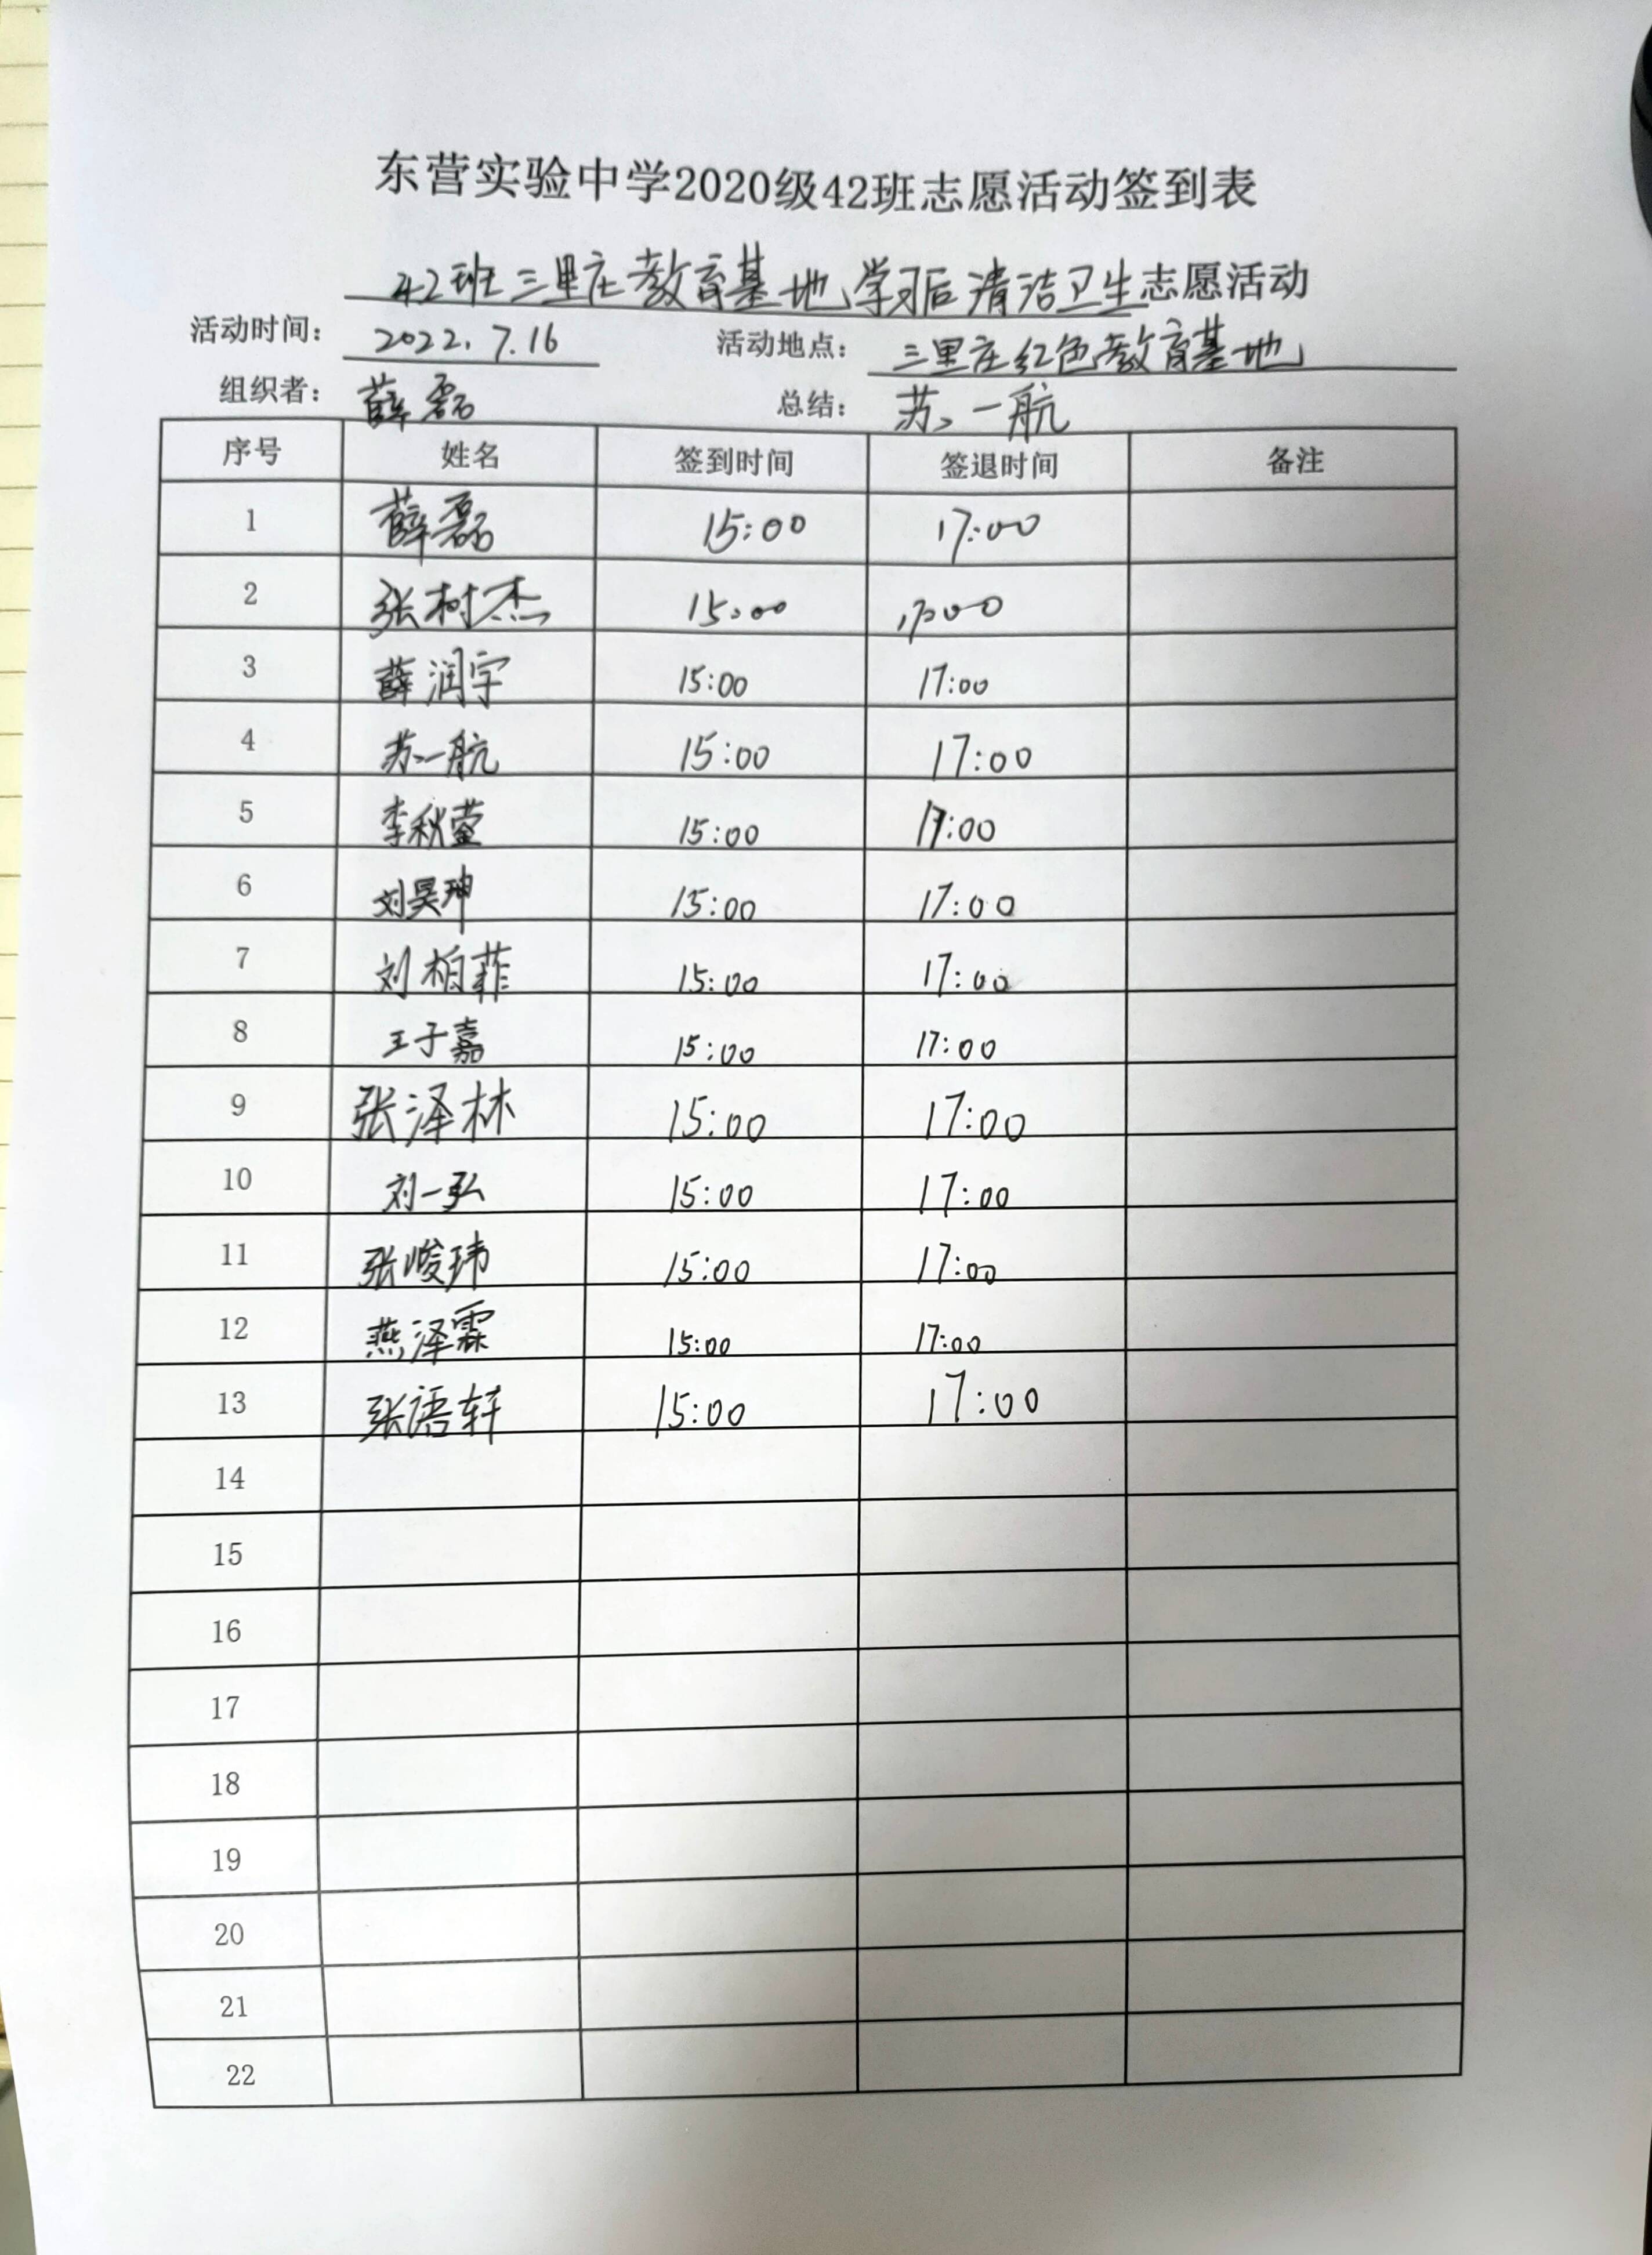 东营实验中学2020级42班志愿活动签到表
42班三里庄教育基地学习后清洁卫生志愿活动
活动时间: 2022.7.16 活动地点: 三里庄红色教育基地
组织者: 薛磊 总结: 苏一航
序号 姓名 签到时间 签退时间 备注
1 薛磊 15:00 17:00
2 张树杰 15:00 17:00
3 薛润宇 15:00 17:00
4 苏一航 15:00 17:00
5 李秋萱 15:00 17:00
6 刘昊珅 15:00 17:00
7 刘柏菲 15:00 17:00
8 王子嘉 15:00 17:00
9 张泽林 15:00 17:00
10 刘一弘 15:00 17:00
11 张峻玮 15:00 17:00
12 燕泽霖 15:00 17:00
13 张语轩 15:00 17:00
14
15
16
17
18
19
20
21
22